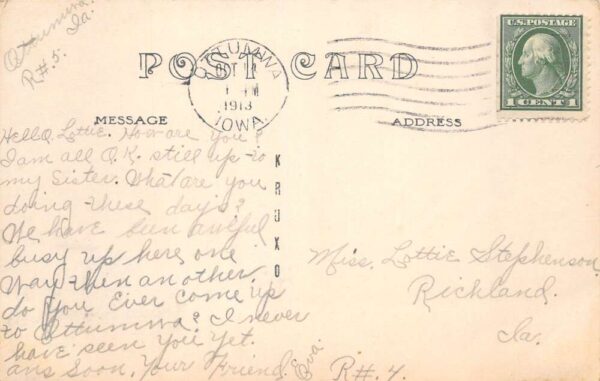 Ottumwa.
Ia.
R#.5.
POST CARD
OTTUMWA
OCT
M
1913
IOWA.
U.S. POSTAGE
1 CENT 1
MESSAGE
ADDRESS
Hello Lottie. How are you?
I am all O.K. still up to
my Sister. What are you
doing these days?
We have been awlful
busy up here one
way then another.
do you Ever come up
to Ottumwa? I never
have seen you yet.
ans soon, Your Friend. Eva.
KRUXO
Miss. Lottie Stephenson
Richland.
Ia.
R#. 4